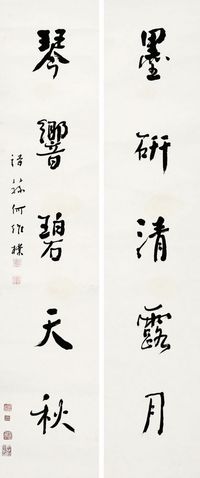 墨研清露月
琴響碧天秋
詩孫何維樸